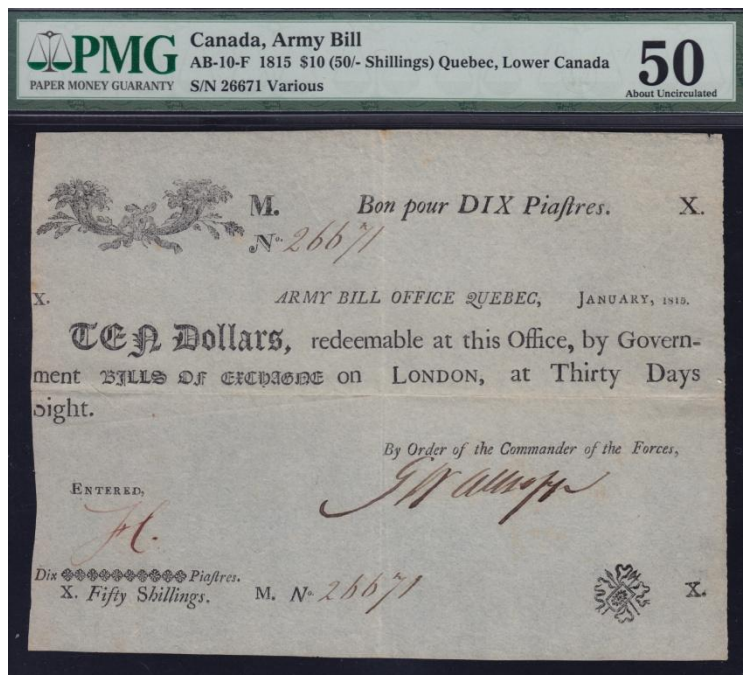 PMG
PAPER MONEY GUARANTY
Canada, Army Bill
AB-10-F 1815 $10 (50/- Shillings) Quebec, Lower Canada
S/N 26671 Various
50
About Uncirculated
M. Bon pour DIX Piaſtres. X.
No. 26671
X. ARMY BILL OFFICE QUEBEC, JANUARY, 1815.
TEN Dollars, redeemable at this Office, by Govern-
ment BILLS OF EXCHAGNE on LONDON, at Thirty Days
sight.
By Order of the Commander of the Forces,
ENTERED,
Dix Piaſtres.
X. Fifty Shillings. M. No. 26671 X.